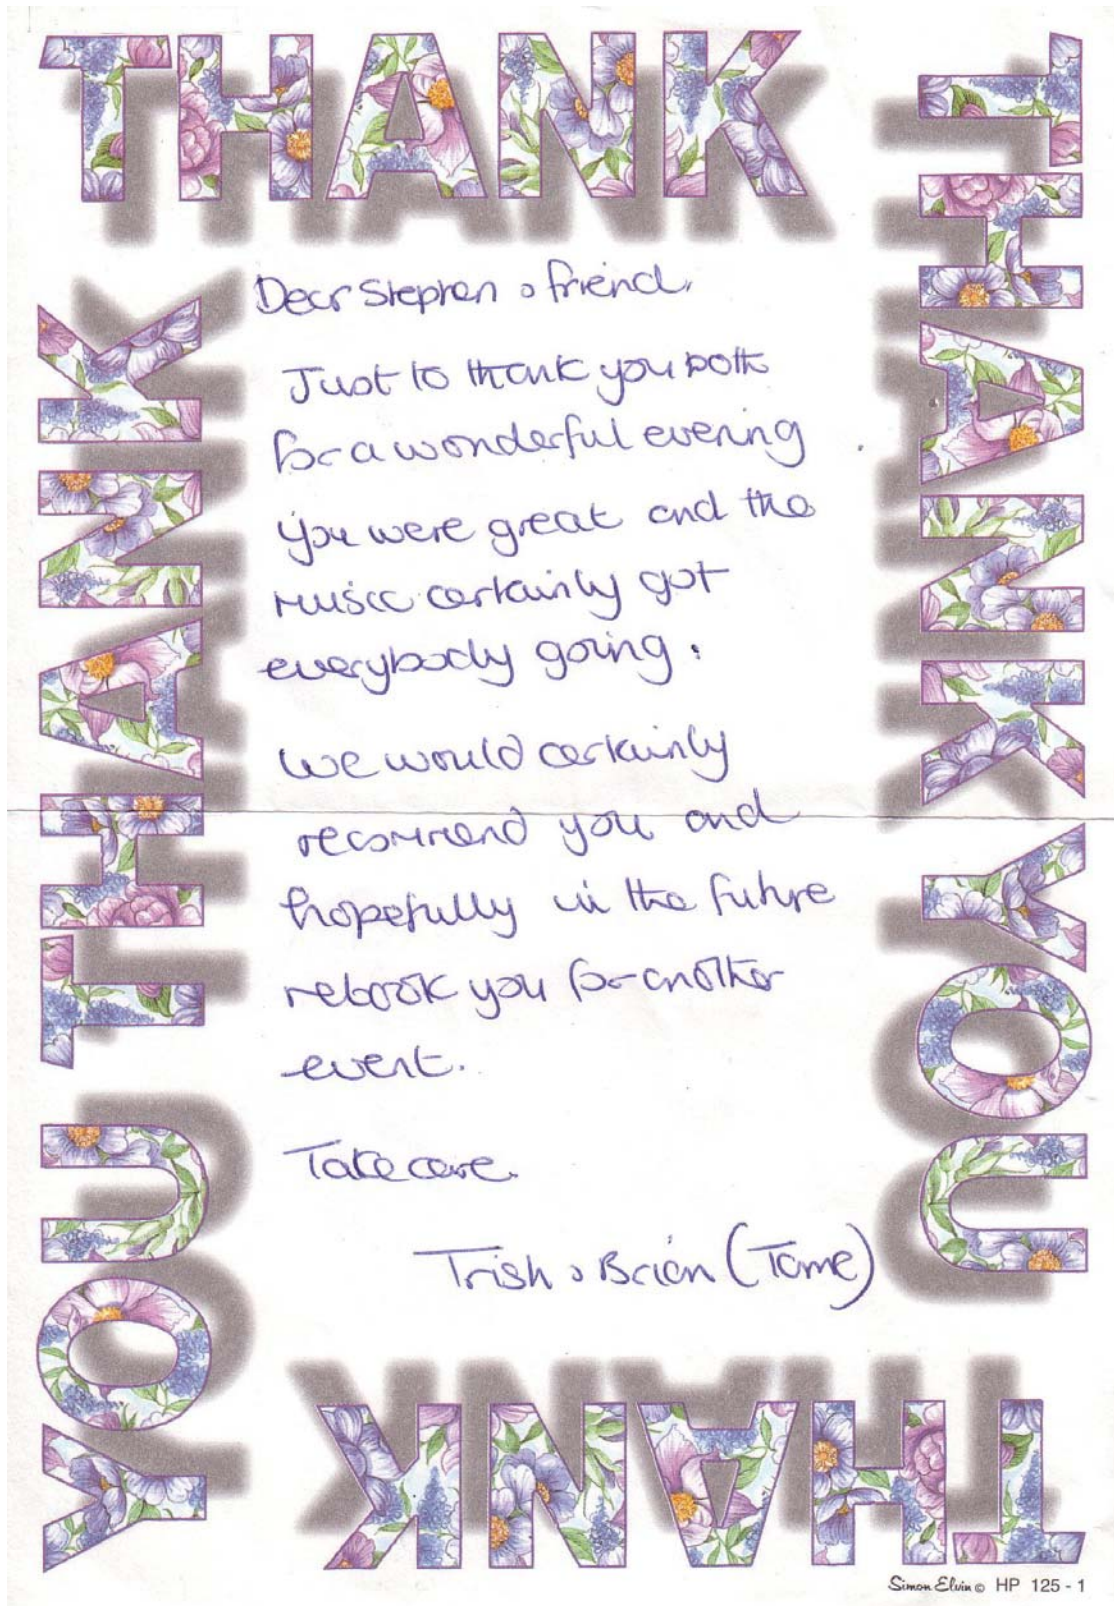 THANK
THANK YOU
Dear Stephen & friend,
Just to thank you both
for a wonderful evening
you were great and the
music certainly got
everybody going.
We would certainly
recommend you and
hopefully in the future
rebook you for another
event.
Take care.
Trish & Brian (Tame)
YOU THANK
THANK
Simon Elvin © HP 125 - 1